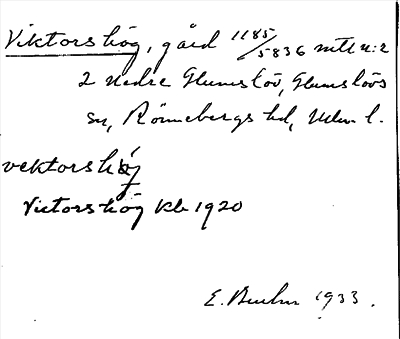 Viktorshög, gård 1185/5836 mtl n:2
2 Nedre Glumslöv, Glumslövs
sn, Rönnebergs hd, Mlm l.
vektorshög
Victorshög Kb 1920
E. 1933.